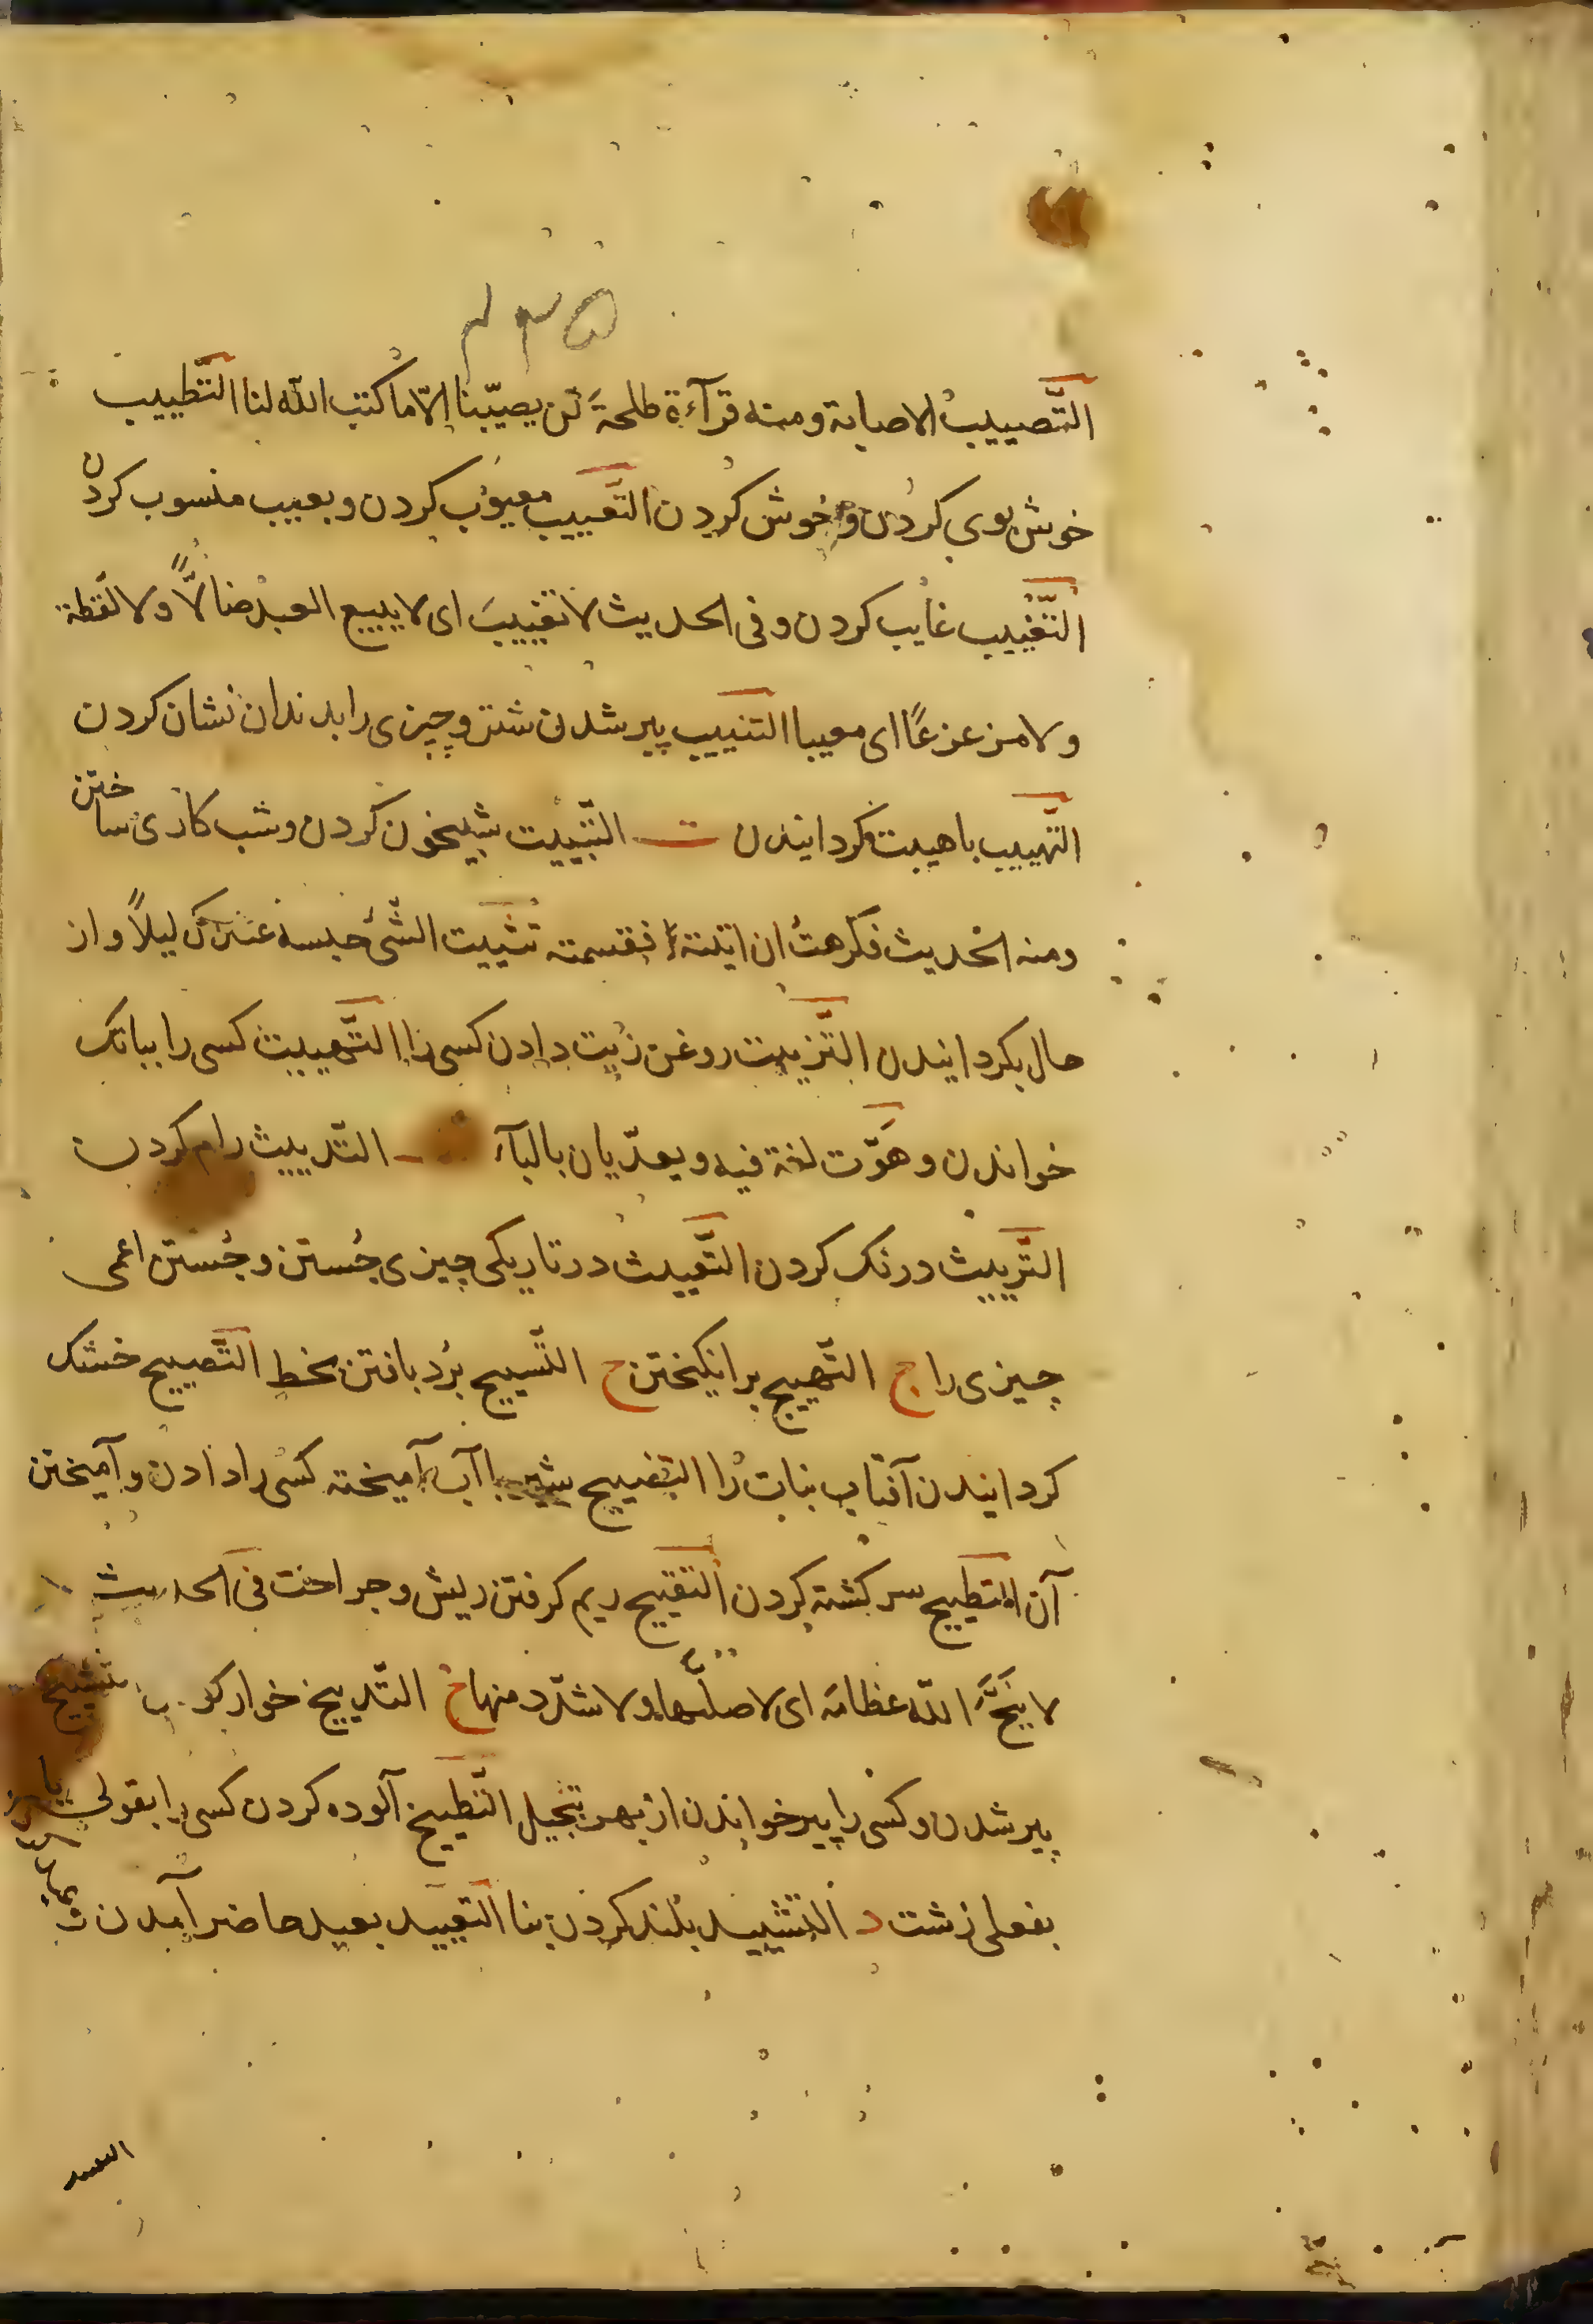 ۲۳۵
التَّصييبُ الاصابة ومنه قرآءة طلحةَ لن يصيّبنا الّا ما كتب الله لنا التَّطييب
خوش بوی کردن و خوش کردن التَّعييب معیوب کردن و بعیب منسوب کردن
التَّغييب غایب کردن و فی الحدیث لا تغییبَ ای لا یبیع العبد ضالًّا ولا لقطة
ولا مزعزعًا ای معیبا التنییب پیر شدن شتر و چیزی را بدندان نشان کردن
التَّهییب باهیبت کردانیدن ت التَّبییت شبیخون کردن و شب کاری ساختن
ومنه الحدیث فکرهتُ ان ابیته فقسمته تبییت الشّیْ حبسه عندک لیلًا و از
حال بکردانیدن التَّزییت روغن زیت دادن کسی را التَّهییت کسی را ببانک
خواندن و هَوَّت لغة فیه و یعدّیان بالبآء التَّدییث رام کردن
التَّرییث درنک کردن التَّعییث در تاریکی چیزی جُستن و جُستن اعمی
چیزی را ج التَّهییج برانکیختن ح التَّسییح بُرد بافتن بخط التَّصییح خشک
کردانیدن آفتاب نبات را التضییح شیر با آب آمیخته کسی را دادن و آمیختن
آن التطییح سرکشته کردن التقییح ریم کرفتن ریش و جراحت فی الحدیث
لا یَنَّخَ الله عظامَه ای لا صلّبها ولا شدّد منها خ التَّدییخ خوار کردن التشییخ
پیر شدن و کسی را پیر خواندن از بهر تبجیل التَّطییخ آلوده کردن کسی را بقولی یا
بفعلی زشت د التشیید بلند کردن بنا التعیید بعید حاضر آمدن